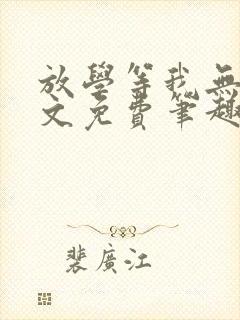 放學等我無
文免費筆趣
裴廣江